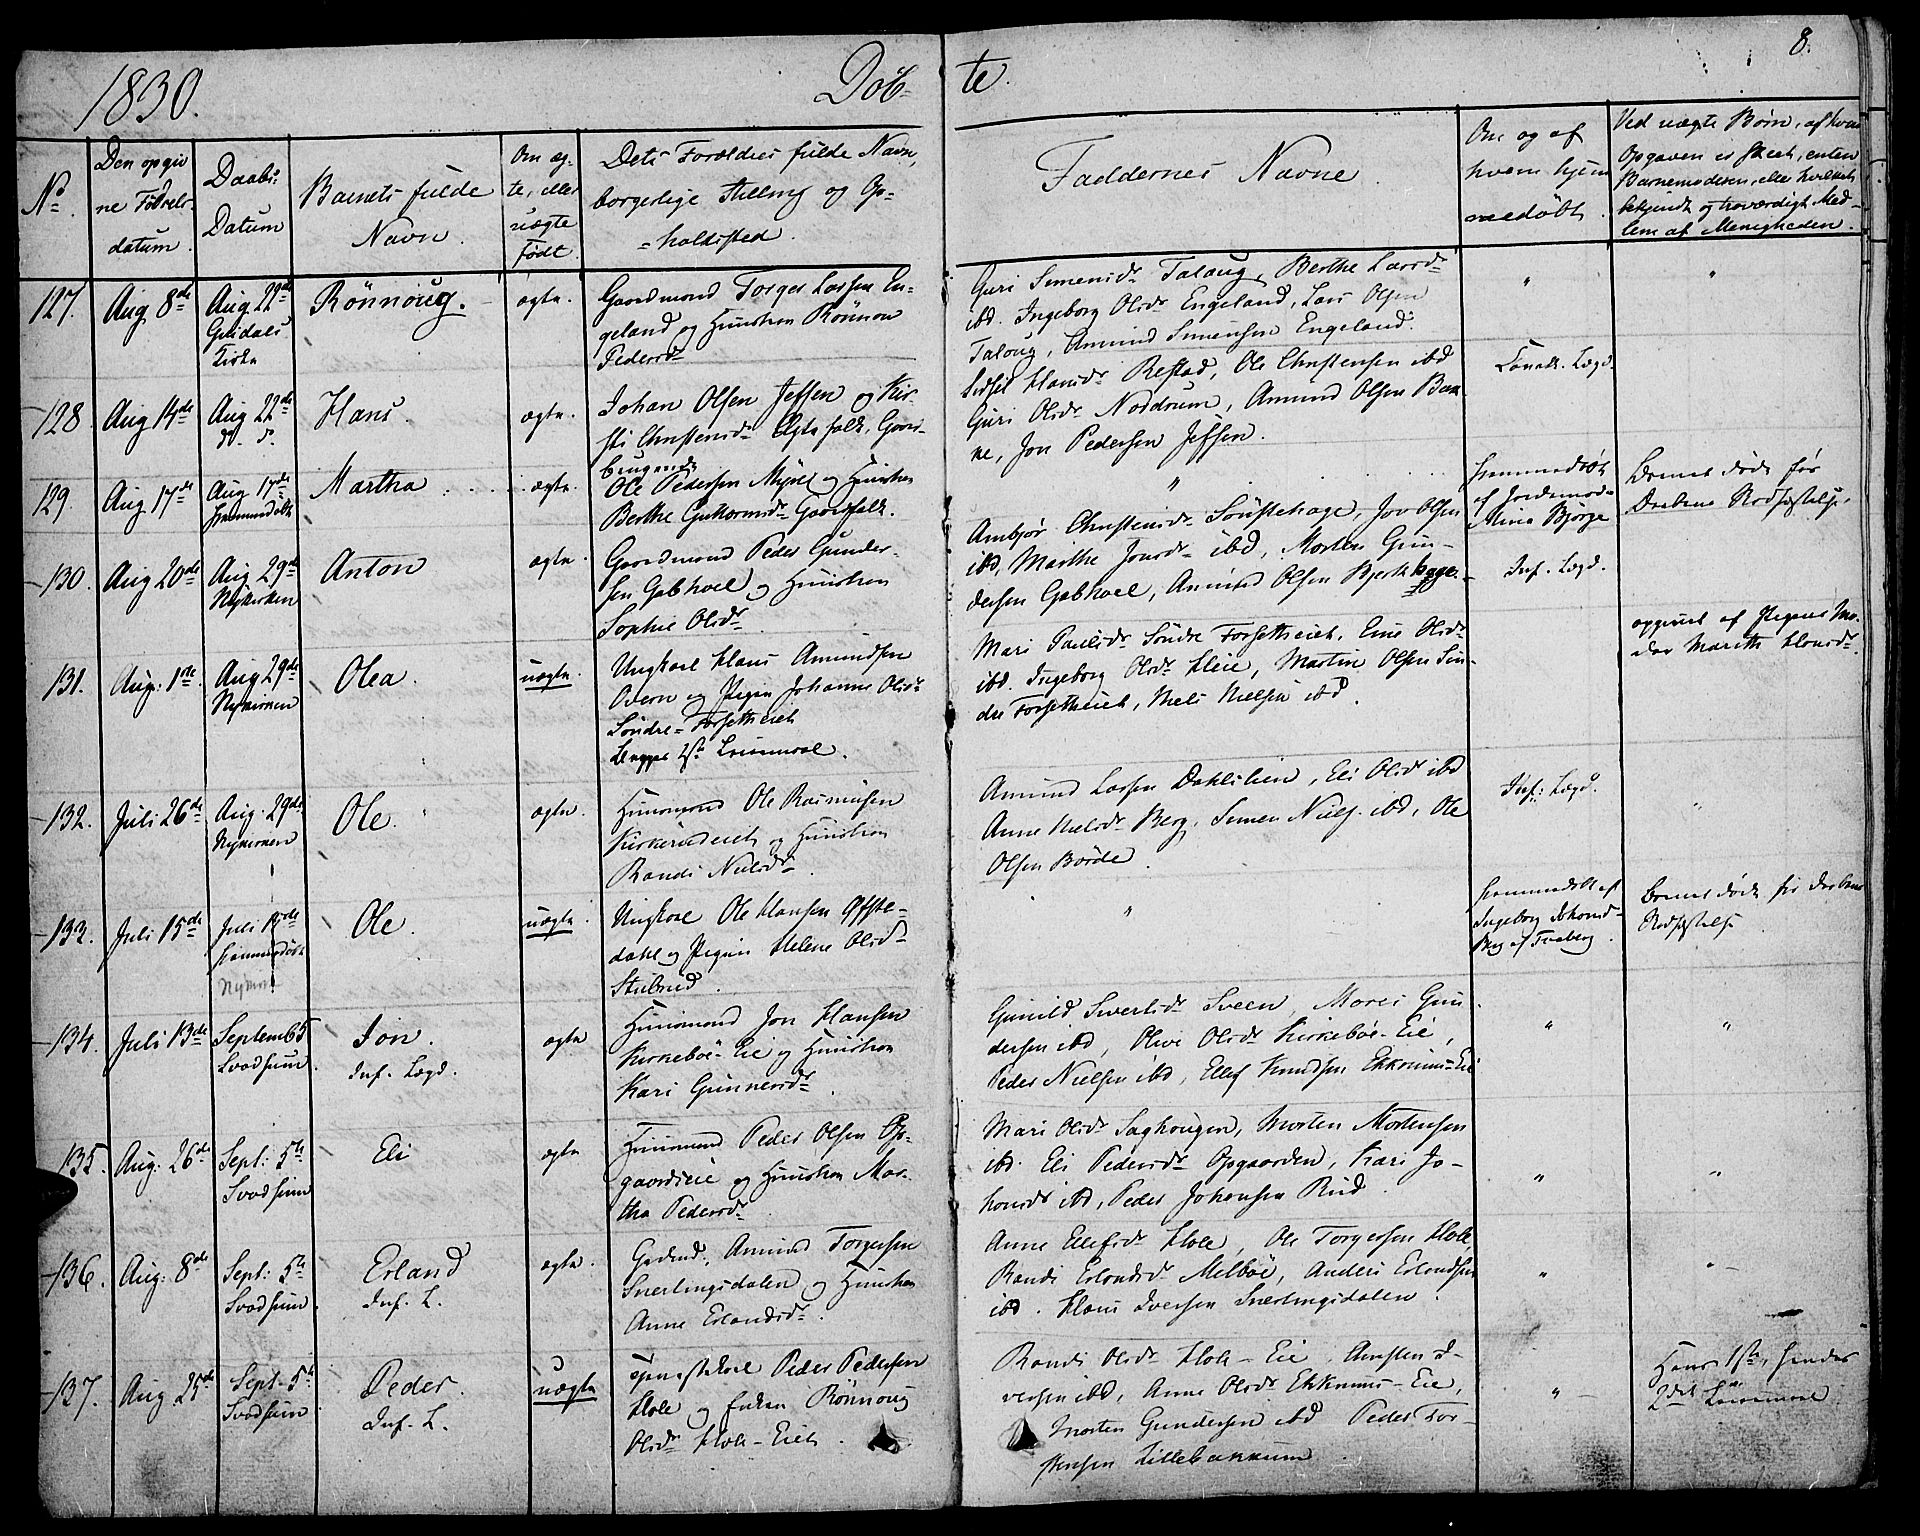 1830.
Döb-
te.
8.
No.
Den opgiv
ne Födsels-
datum.
Daabs-
Datum
Barnets fulde
Navn.
Om æg-
te, eller
uægte
Födt.
Dets Forældres fulde Navn,
borgerlige Stilling og Op-
=holdssted.
Faddernes Navne.
Om og af
hvem hjem
medöbt.
Ved uægte Börn, af hvem
Opgaven er skeet, enten
Barnemoderen, eller hvilket
bekjendt og troværdigt Med-
lem af Menigheden.
127.
Aug 8de
Aug. 22de
Gusdals
Kirke
Rönnoug.
ægte.
Gaardmand Torger Larsen En-
geland og Hustru Rönnou
Pedersdr
Guri Simensdr Taloug, Berthe Larsdr
ibd. Ingeborg Olsdr Engeland, Lars Olsen
Taloug, Amund Simensen Engeland.
"
"
128
Aug 14de
Aug 22de
d. d.
Hans.
ægte.
Johan Olsen Jessen og Kir-
sti Christensdr Ægtefolk, Gaard-
brugende
Sidsel Hansdr Restad, Ole Christensen ibd
Guri Olsdr Noddrum, Amund Olsen Bak-
ke, Jon Pedersen Jessen.
Lægd.
129.
Aug 17de
Aug 17de
hjemmedöbt
Martha
ægte.
Ole Pedersen Myre og Hustru
Berthe Guttormsdr Gaardfolk.
"
hjemmedöbt
af Jordemod-
Mina Bjørge
Barnet döde för
Daabens Stadfæstelse.
130.
Aug 20de
Aug. 29de
Nykirken
Anton
ægte.
Gaardmand Peder Gunder-
sen Gabhoel og Hustru
Sophie Olsdr
Ambjør Christensdr Sönstehage, Jon Olsen
ibd, Marthe Jonsdr ibd, Morten Gun-
dersen Gabhoel, Amund Olsen Bjerkehage.
Inf. Lægd.
131.
Aug: 1ste.
Aug 29de
Nykirken
Olea.
uægte.
Ungkarl Hans Amundsen
Overn og Pigen Johanne Olsdr
Söndre-Forsetheiet
Begges 1ste Leiermaal.
Mari Paulsdr Söndre Forsetheiet, Erne Olsdr
ibd. Ingeborg Olsdr Hleie, Martin Olsen Sön-
dre Forsetheiet, Niels Nielsen ibd.
opgivet af Pigens Mo-
der Marith Hansdr.
132.
Juli 26de
Aug. 29de
Nykirken
Ole.
ægte.
Huusmand Ole Rasmussen
Kirkerudeiet og Hustru
Randi Nielsdr
Amund Larsen Dahlslien, Eli Olsdr ibd
Anne Nielsdr Berg, Simen Niels. ibd, Ole
Olsen Börde.
Inf: Lægd.
"
133.
Juli 15de
Juli 19de
hjemmedöbt
Nykirke
Ole
uægte.
Ungkarl Ole Hansen Offste-
dahl og Pigen Helene Olsdr
Stubrud.
"
hjemmedöbt af
Ingeborg Johansd-
Berg af Faaberg.
Barnet döde för Daabens
Stadfæstelse
134.
Juli 13de
Septemb 5
Svodsum.
Jon.
Inf. Lægd.
ægte
Huusmand Jon Hansen
Kirkeböe-Eie og Hustru
Kari Gunnersdr
Gunild Sivertsdr Sveen, Mares Gun-
dersen ibd, Olive Olsdr Kirkeböe-Eie,
Peder Nielsen ibd, Ellef Knudsen Ekkrims-Eie
"
"
135.
Aug: 26de
Sept: 5te
Svodsum
Eli
ægte
Huusmand Peder Olsen Op-
gaardseie og Hustru Mar-
tha Pedersdr.
Mari Olsdr Saghougen, Morten Mortensen
ibd. Eli Pedersdr Opgaarden, Kari Jo-
hansdr ibd, Peder Johansen Rud.
"
"
136.
Aug: 8de
Sept: 5te
Svodsum.
Erland
Inf. L.
ægte.
Gdmd. Amund Torgersen
Snerlingsdalen og Hustru
Anne Erlandsdr.
Anne Ellefsdr Hole, Ole Torgersen Hole,
Randi Erlandsdr Melböe, Anders Erlandsen
ibd. Hans Iversen Snerlingsdalen.
"
"
137.
Aug 25de
Sept. 5te
Svodsum
Peder.
Inf. L.
uægte
Peder Pedersen
Hole og Enken Rönnoug
Olsdr Hole-Eiet.
Randi Olsdr Hole-Eie, Amsten I-
versen ibd, Anne Olsdr Ekkrims-Eie,
Morten Gundersen ibd Peder Tor-
stensen Lillebakkum.
"
Hans 1ste, hendes
2det Leiermaal